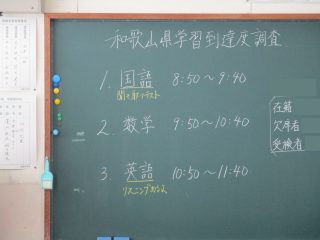 和歌山県学習到達度調査
1. 国語 8:50～9:40
聞き取りテスト
2. 数学 9:50～10:40
3. 英語 10:50～11:40
リスニングあるよ
在籍
欠席者
受検者